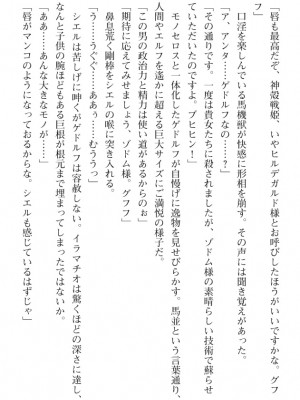 「唇も最高だぞ、神殻戦姫、いやヒルデガルド様とお呼びしたほうがいいですかな。グフ
フ」
口淫を楽しんでいる馬機獣が快感に形相を崩す。その声には聞き覚えがあった。
「ア、アンタ……ゲドルフなの……？」
「その通りです。一度は貴女たちに殺されましたが、ゾドム様の素晴らしい技術で蘇らせ
ていただいたのですよ。ブヒヒン！」
モノセロスと一体化したゲドルフが自慢げに逸物を見せびらかす。馬並という言葉通り、
人間やエルフを遥かに超える巨大サイズにご満悦の様子だ。
「この男の政治力と精力は使い道があるからのぉ」
「期待に応えてみせましょう、ゾドム様。グフフ」
鼻息荒く剛棒をシエルの喉に突き入れる。
「う……うぐぐ……ああぅ……むううっ」
シエルは苦しげに呻くがゲドルフは容赦しない。イラマチオは驚くほどの深さに達し、
なんと子供の腕ほどもある巨根が根元まで埋まってしまったではないか。
「ああ……あんな大きなモノが……」
「唇がマンコのようになっておるからな。シエルも感じているはずじゃ」